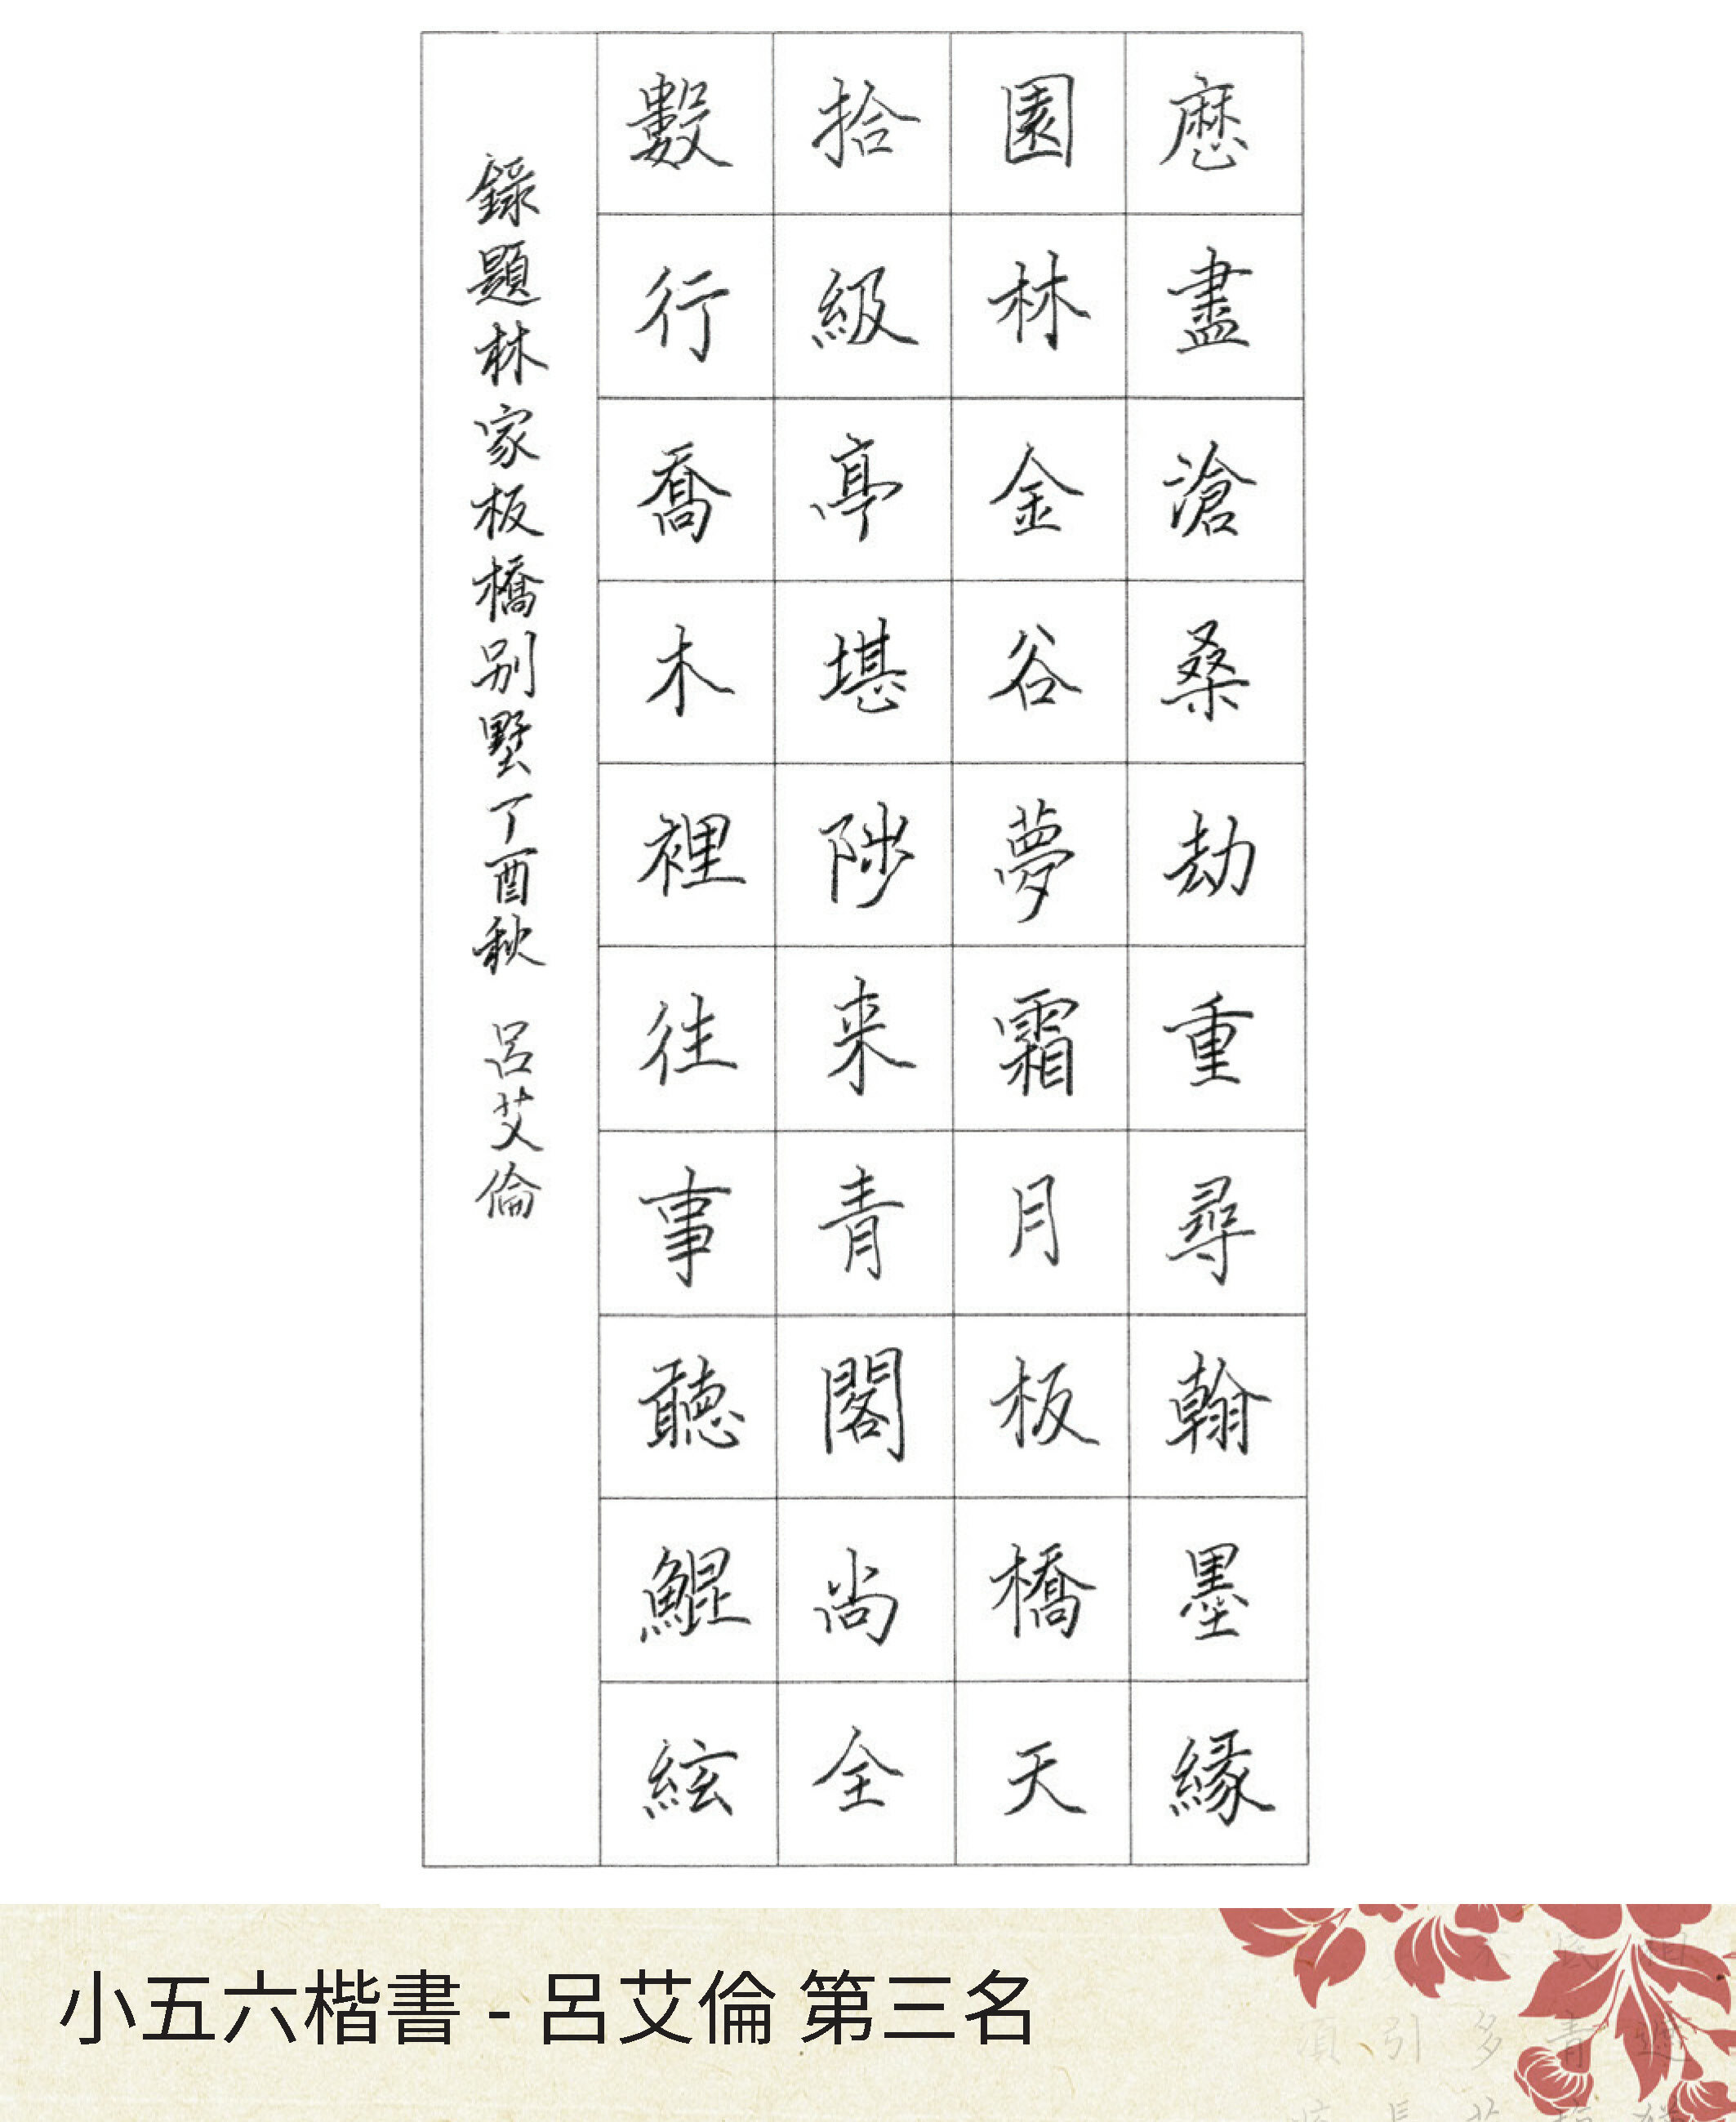 歷盡滄桑劫重尋翰墨緣
園林金谷夢霜月板橋天
拾級亭堪陟来青閣尚全
數行喬木裡往事聽鯤絃
錄題林家板橋別墅丁酉秋 呂艾倫
小五六楷書 - 呂艾倫 第三名